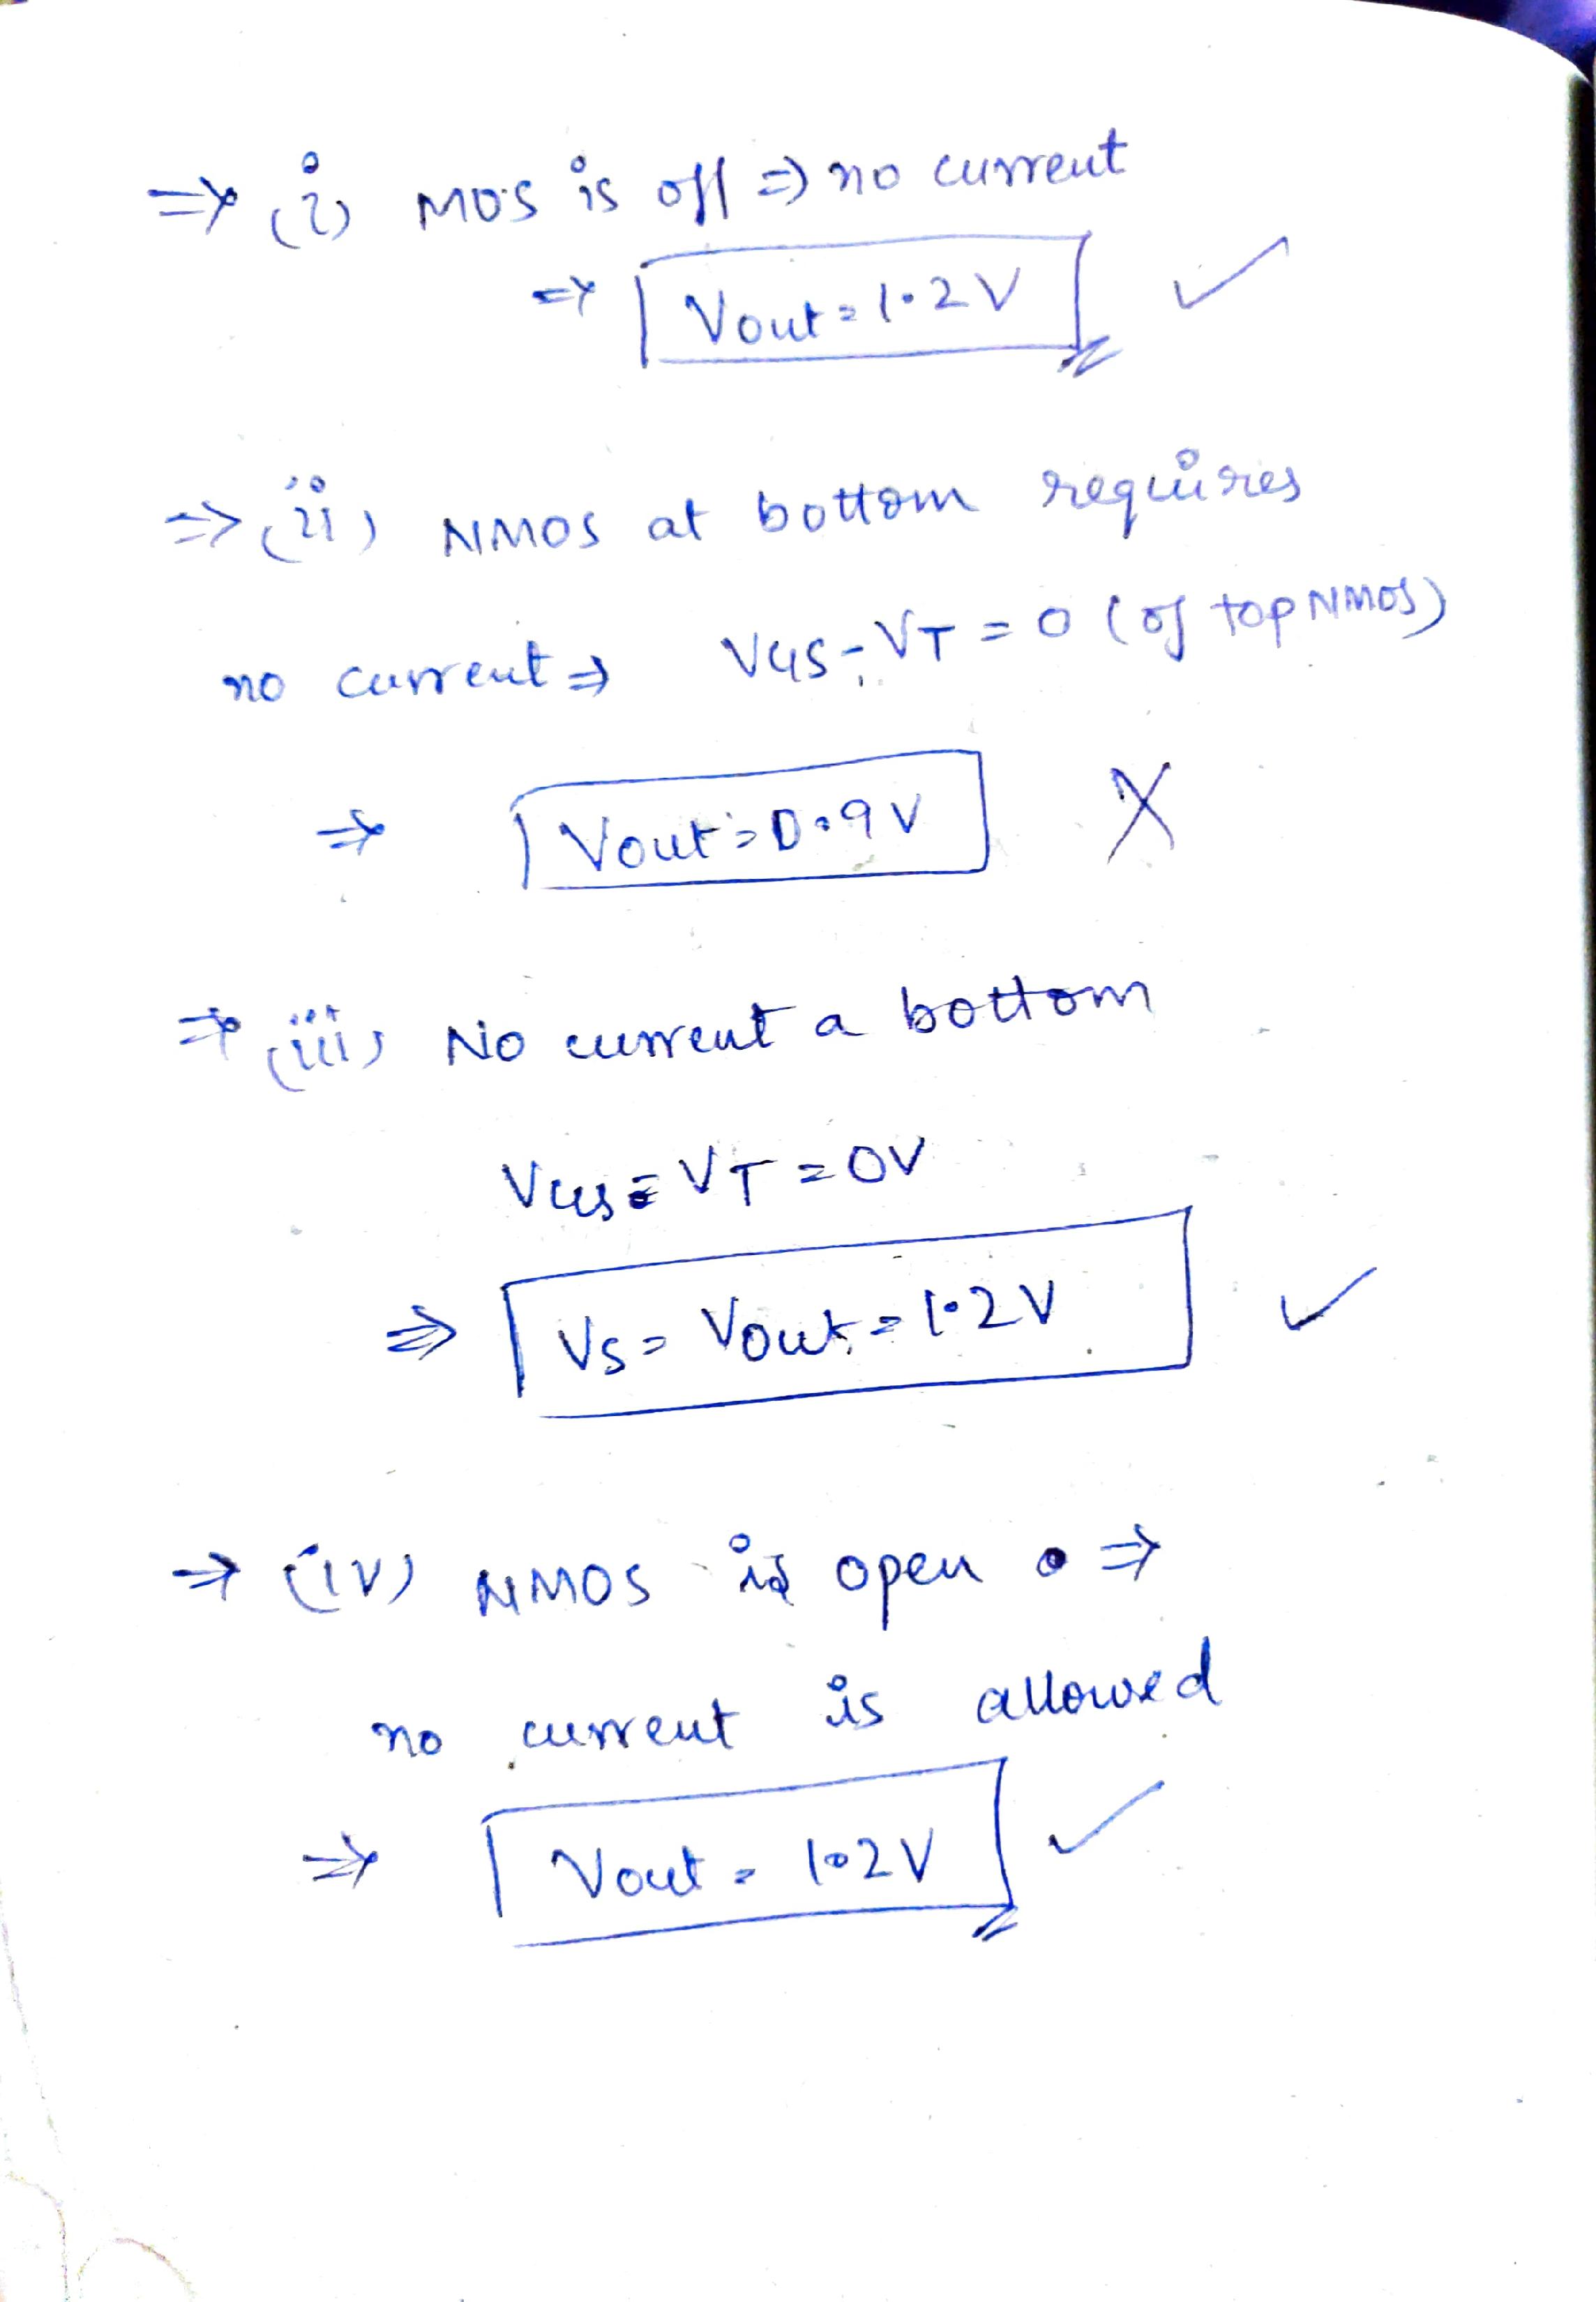 ⇒ (i) MOS is off ⇒ no current
⇒ Vout = 1.2V ✓
⇒ (ii) NMOS at bottom requires
no current ⇒ VGS - VT = 0 (of top NMOS)
⇒ Vout = 0.9V X
⇒ (iii) No current a bottom
VGS = VT = 0V
⇒ Vs = Vout = 1.2V ✓
→ (iv) NMOS is open ⇒
no current is allowed
⇒ Vout = 1.2V ✓